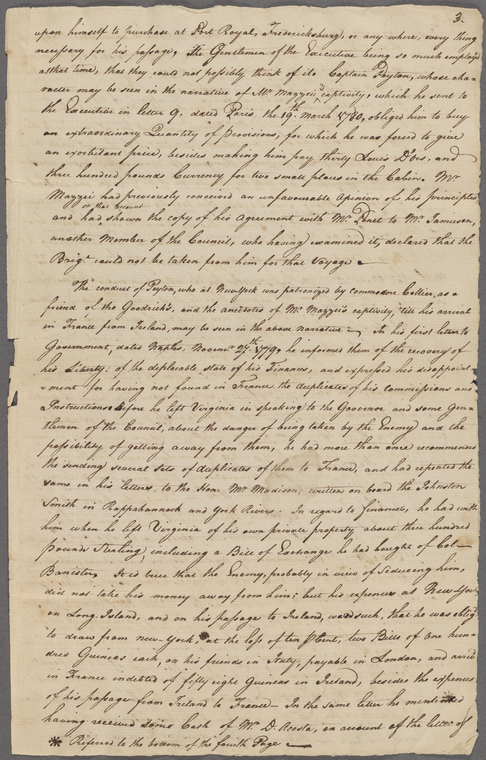 3.
upon himself to purchase at Port Royal, Fredericksburg, or any where, every thing
necessary for his passage, the Gentlemen of the Executive being so much employ'd
at that time, that they could not possibly think of it. Captain Peyton, whose cha-
racter may be seen in the narrative of Mr Mazzei's captivity, which he sent to
the Executive in letter 9. dated Paris the 19th March 1780, obliged him to buy
an extraordinary Quantity of provisions, for which he was forced to give
an exorbitant price, besides making him pay thirty Louis D'ors, and
three hundred pounds Currency for two small places in the Cabin. Mr
Mazzei had previously conceived an unfavourable Opinion of his principles,
on that account
and had shown the copy of his Agreement with Mr Penet to Mr Jameson,
another Member of the Council, who having examined it, declared that the
Brign could not be taken from him for that Voyage.
The conduct of Peyton, who at New-York was patronized by commodore Collier, as a
friend of the Goodrich's, and the anecdotes of Mr Mazzei's captivity, 'till his arrival
in France from Ireland, may be seen in the above narrative. In his first letter to
Government, dated Nantes, Novemr 27th 1779, he informed them of the recovery of
his Liberty: of the deplorable state of his Finances, and expressed his disappoint-
-ment for having not found in France the duplicates of his commissions and
Instructions. Before he left Virginia in speaking to the Governor and some Gen-
tlemen of the Council, about the danger of being taken by the Enemy and the
possibility of getting away from them, he had more than once recommended
the sending several sets of duplicates of them to France, and had repeated the
same in his letters, to the Hon. Mr Madison, written on board the Johnston
Smith in Rappahannock and York Rivers. In regard to finances, he had with
him when he left Virginia of his own private property about three hundred
pounds Sterling, including a Bill of Exchange he had bought of Col.
Banister. It is true that the Enemy, probably in view of Seducing him,
did not take his money away from him; but his expences at New-York,
on Long-Island, and on his passage to Ireland, was such, that he was oblig'd
to draw from new-York * at the loss of ten P Cent, two Bills of One hun-
dred Guineas each, on his friends in Italy, payable in London, and arriv'd
in France indebted of fifty eight Guineas in Ireland, besides the expences
of his passage from Ireland to France. In the same letter he mentioned
having received some Cash of Mr D. Acosta, on account of the letter of
* Referred to the bottom of the fourth Page